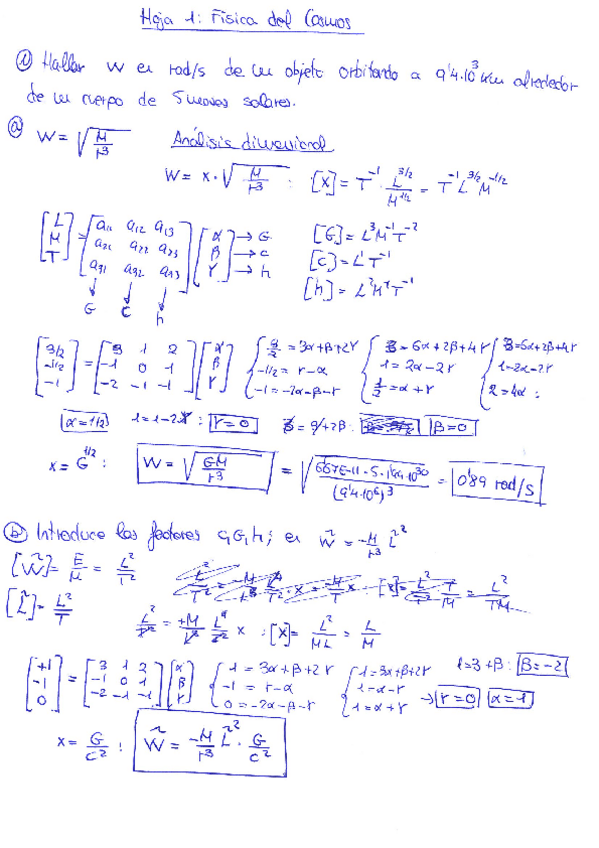 Hoja 1: Física del Cosmos
① Hallar W en rad/s de un objeto orbitando a 9'4·10³ km alrededor
de un cuerpo de 5 masas solares.
ⓐ W = √(M/r³) Análisis dimensional
W = x·√(M/r³) : [X] = T⁻¹ · L^(3/2)/M^(1/2) = T⁻¹ L^(3/2) M^(-1/2)
[L M T] = [a₁₁ a₁₂ a₁₃; a₂₁ a₂₂ a₂₃; a₃₁ a₃₂ a₃₃] [α β γ] → G → c → h
↓ G ↓ C ↓ h
[G] = L³M⁻¹T⁻²
[C] = L¹T⁻¹
[h] = L²M¹T⁻¹
[3/2 -1/2 -1] = [3 1 2; -1 0 1; -2 -1 -1] [α β γ]
{ 3/2 = 3α+β+2γ
-1/2 = γ-α
-1 = -2α-β-γ
{ 3 = 6α+2β+4γ
1 = 2α-2γ
1/2 = α+γ
{ 3 = 6α+2β+4γ
1 = 2α-2γ
2 = 4α :
α = 1/2 1 = 1-2γ : γ = 0 β = 0
x = G^(1/2) : W = √(GM/r³) = √(6'67E-11·5·1'99·10³⁰/(9'4·10⁶)³) = 0'89 rad/s
ⓑ Introduce los factores c, G, h; en W̃ = -M/r³ L̃²
[W̃] = E/M = L²/T²
[L̃] = L²/T
L²/T² = +M/L³ L⁴/T² x : [X] = L²/ML = L/M
[+1 -1 0] = [3 1 2; -1 0 1; -2 -1 -1] [α β γ]
{ 1 = 3α+β+2γ
-1 = γ-α
0 = -2α-β-γ
{ 1 = 3α+β+2γ
1 = α-γ
1 = α+γ → γ = 0 α = 1
1 = 3+β : β = -2
x = G/c² : W̃ = -M/r³ L̃² · G/c²